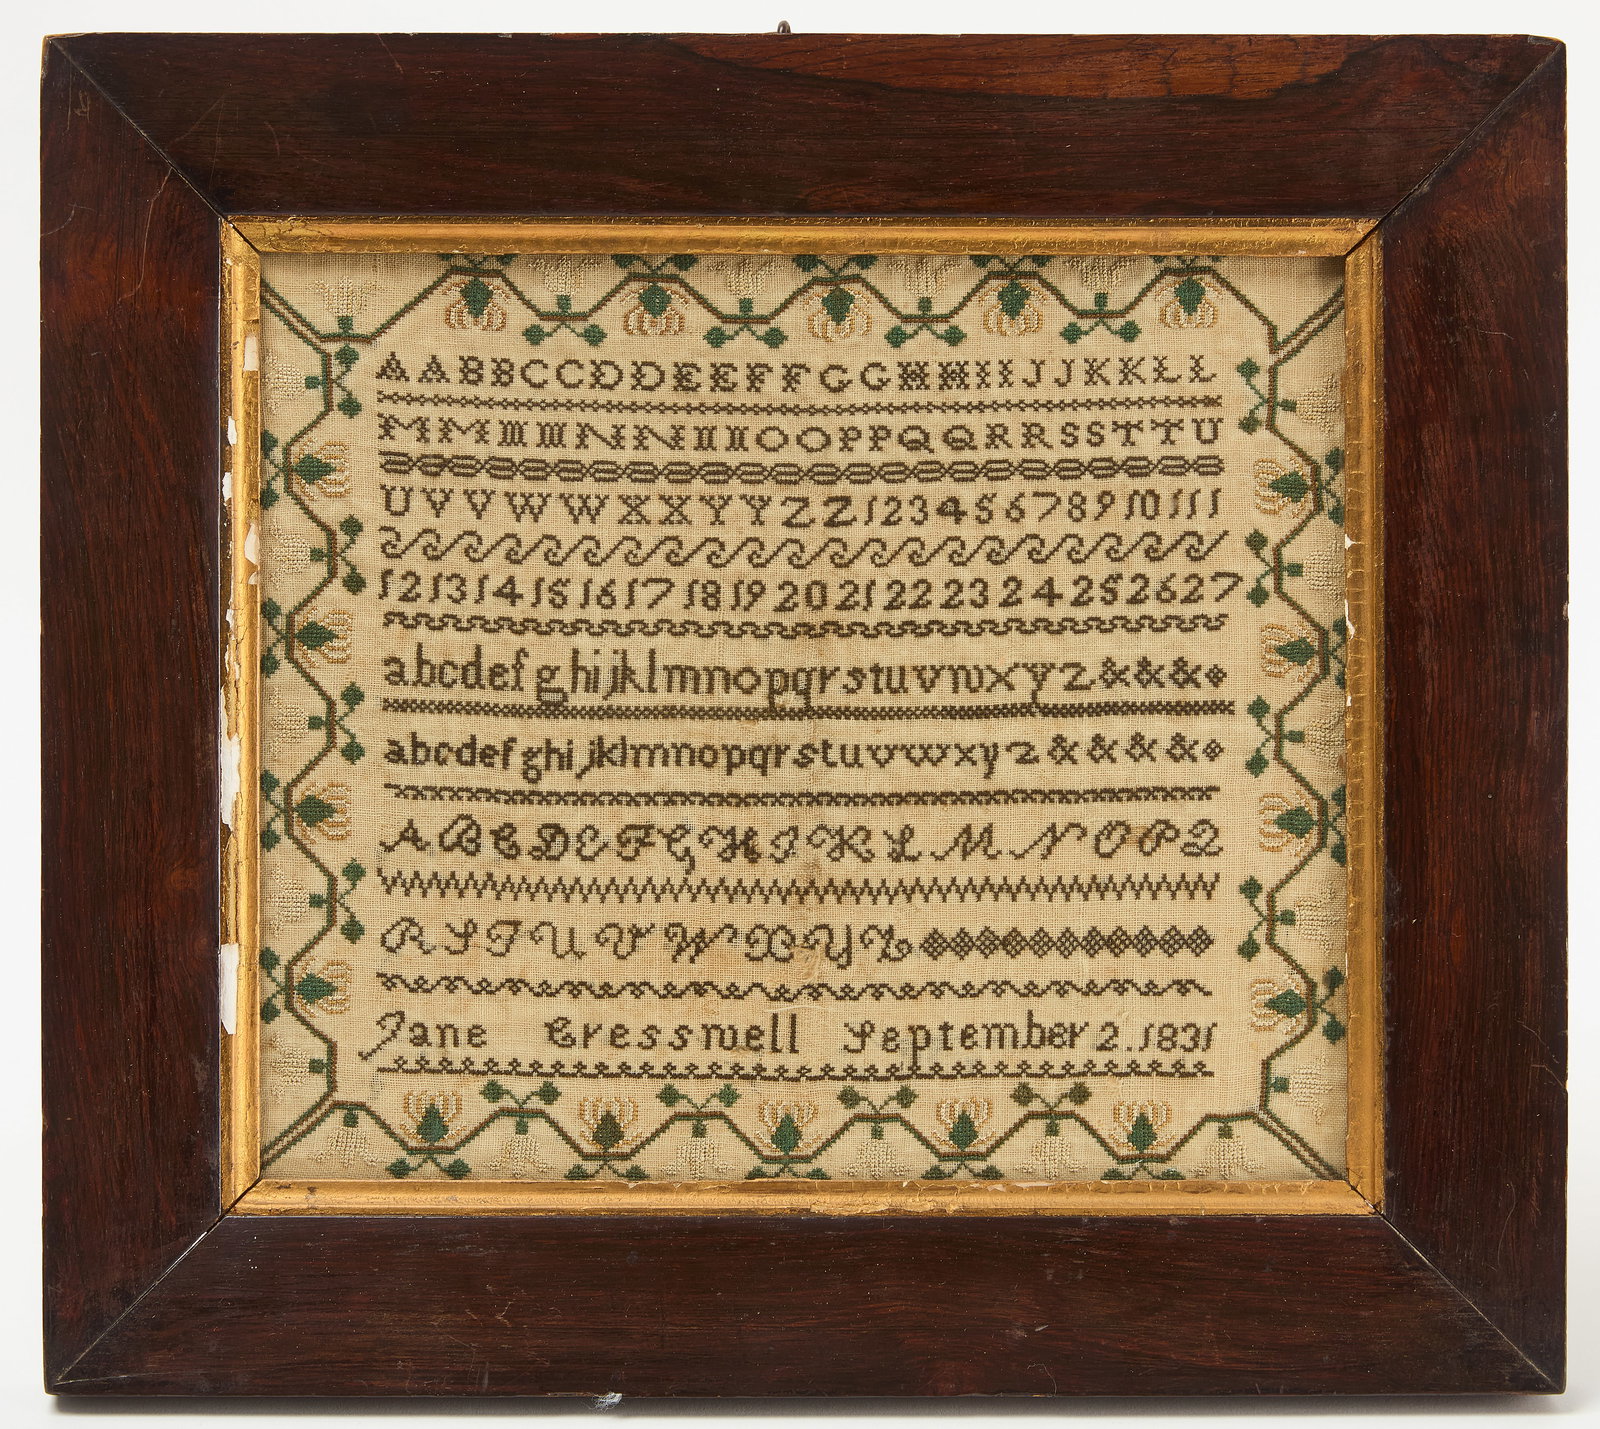 AABBCCDDEEFFGGHHIIJJKKLL
MMMMNNNNOOPPQQRRSSTTU
UVVWWXXYYZZ12345678910111
12131415161718192021222324252627
abcdefghijklmnopqrstuvwxyz&&&
abcdefghijklmnopqrstuvwxyz&&&&
ABCDEFGHIKLMNOPQ
RSTUVWXYZ
Jane Cresswell September 2.1831